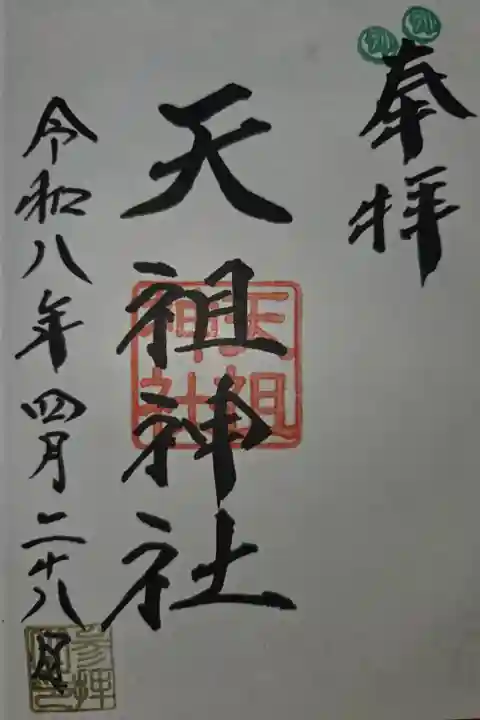 奉拝
天祖神社
天祖神社
令和八年四月二十八日